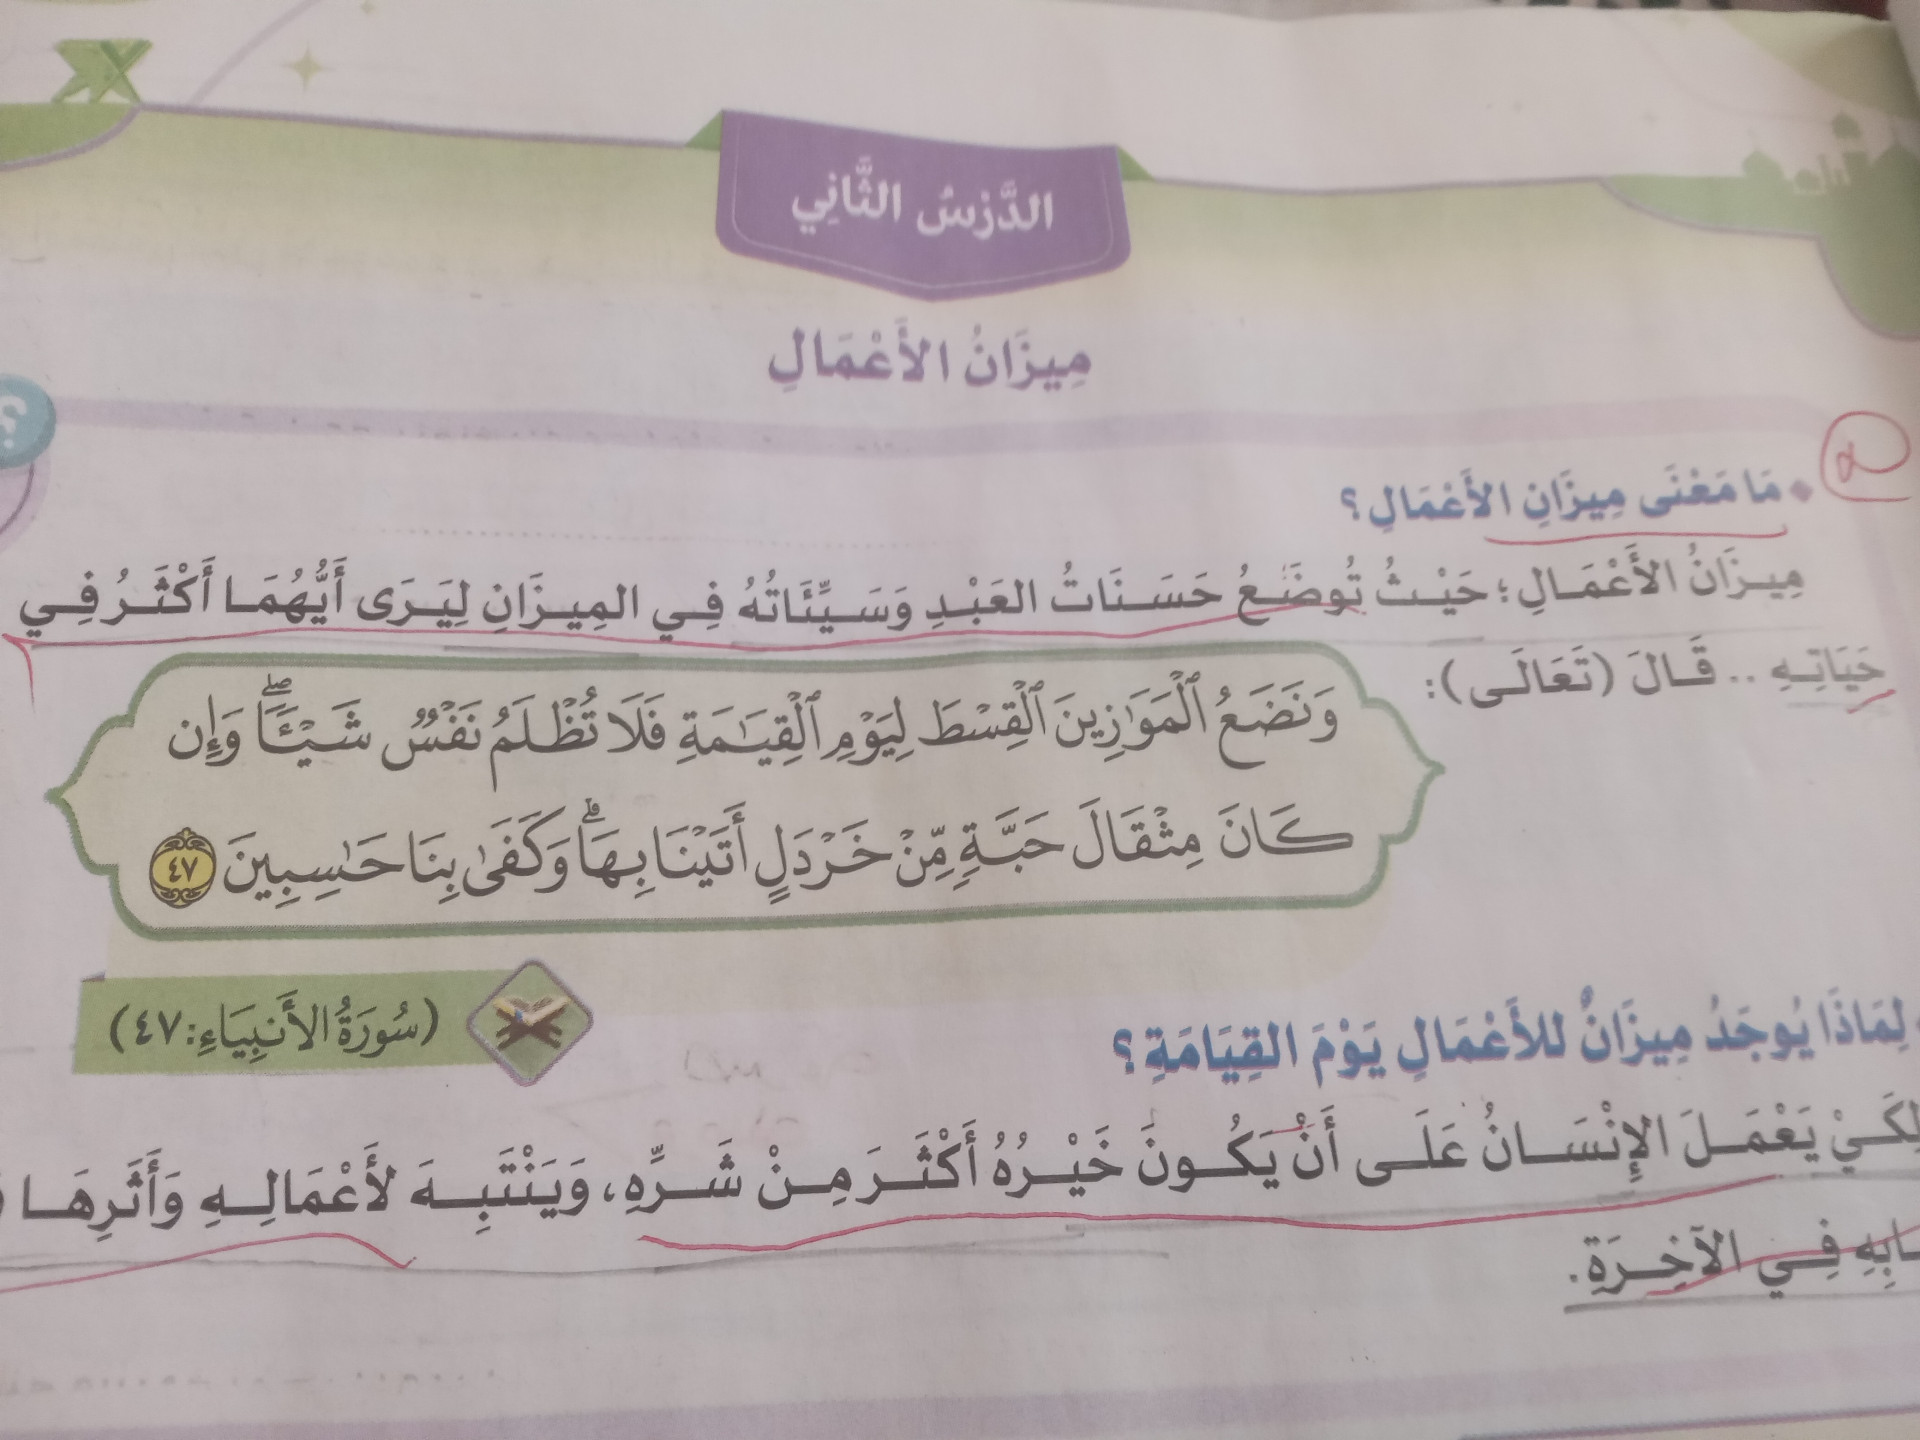 الدَّرْسُ الثَّانِي
مِيزَانُ الأَعْمَالِ
مَا مَعْنَى مِيزَانِ الأَعْمَالِ؟
مِيزَانُ الأَعْمَالِ؛ حَيْثُ تُوضَعُ حَسَنَاتُ العَبْدِ وَسَيِّئَاتُهُ فِي المِيزَانِ لِيَرَى أَيُّهُمَا أَكْثَرُ فِي
حَيَاتِهِ .. قَالَ (تَعَالَى):
وَنَضَعُ ٱلْمَوَٰزِينَ ٱلْقِسْطَ لِيَوْمِ ٱلْقِيَٰمَةِ فَلَا تُظْلَمُ نَفْسٌ شَيْـًٔاۖ وَإِن
كَانَ مِثْقَالَ حَبَّةٍ مِّنْ خَرْدَلٍ أَتَيْنَا بِهَاۗ وَكَفَىٰ بِنَا حَٰسِبِينَ ٤٧
(سُورَةُ الأَنبِيَاءِ: ٤٧)
لِمَاذَا يُوجَدُ مِيزَانٌ للأَعْمَالِ يَوْمَ القِيَامَةِ؟
لِكَيْ يَعْمَلَ الإِنْسَانُ عَلَى أَنْ يَكُونَ خَيْرُهُ أَكْثَرَ مِنْ شَرِّهِ، وَيَنْتَبِهَ لأَعْمَالِهِ وَأَثَرِهَا
فِي الآخِرَةِ.